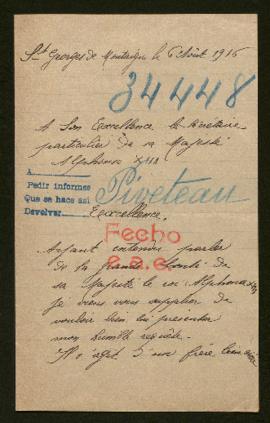 St Georges de Montaigu le 6 Août 1916
34448
A Son Excellence le Secrétaire
particulier de sa Majesté
Alphonse XIII
A
Pedir informes
Que se hace así
Devolver
Piveteau
Excellence,
Fecho
Ayant entendu parler
de la grande bonté de
sa Majesté le roi Alphonse XIII
je viens vous supplier de
vouloir bien lui présenter
mon humble requête.
Il s'agit d'un frère bien